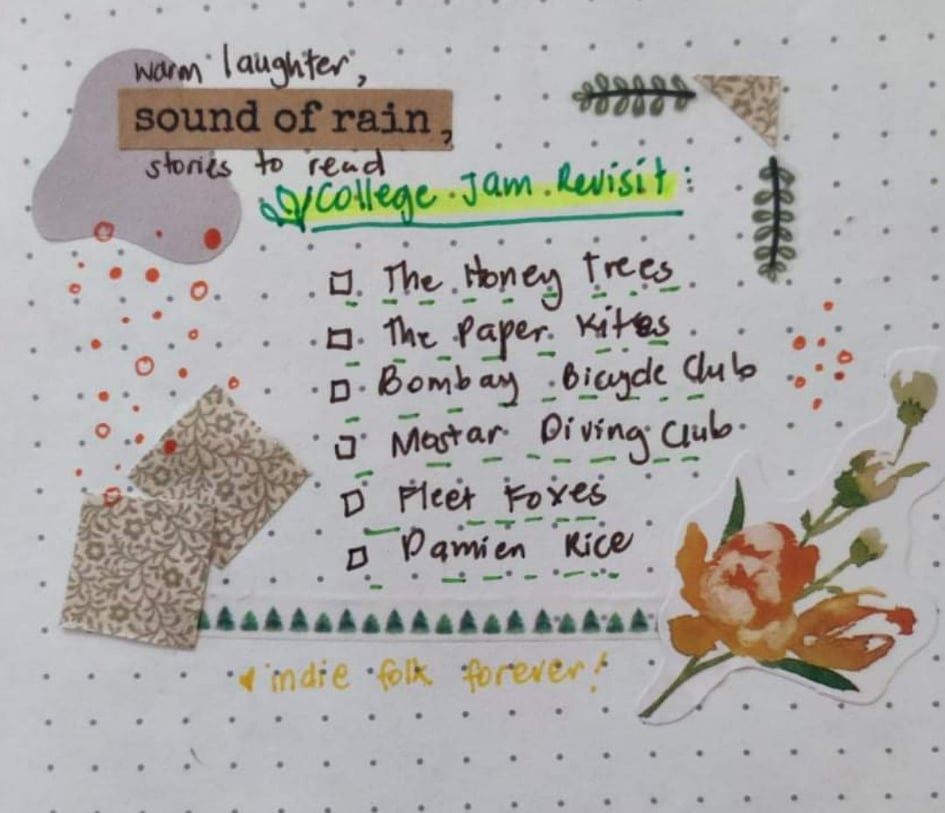 warm laughter,
sound of rain,
stories to read
College Jam Revisit:
The Honey Trees
The Paper Kites
Bombay Bicycle Club
Mostar Diving Club
Fleet Foxes
Damien Rice
indie folk forever!